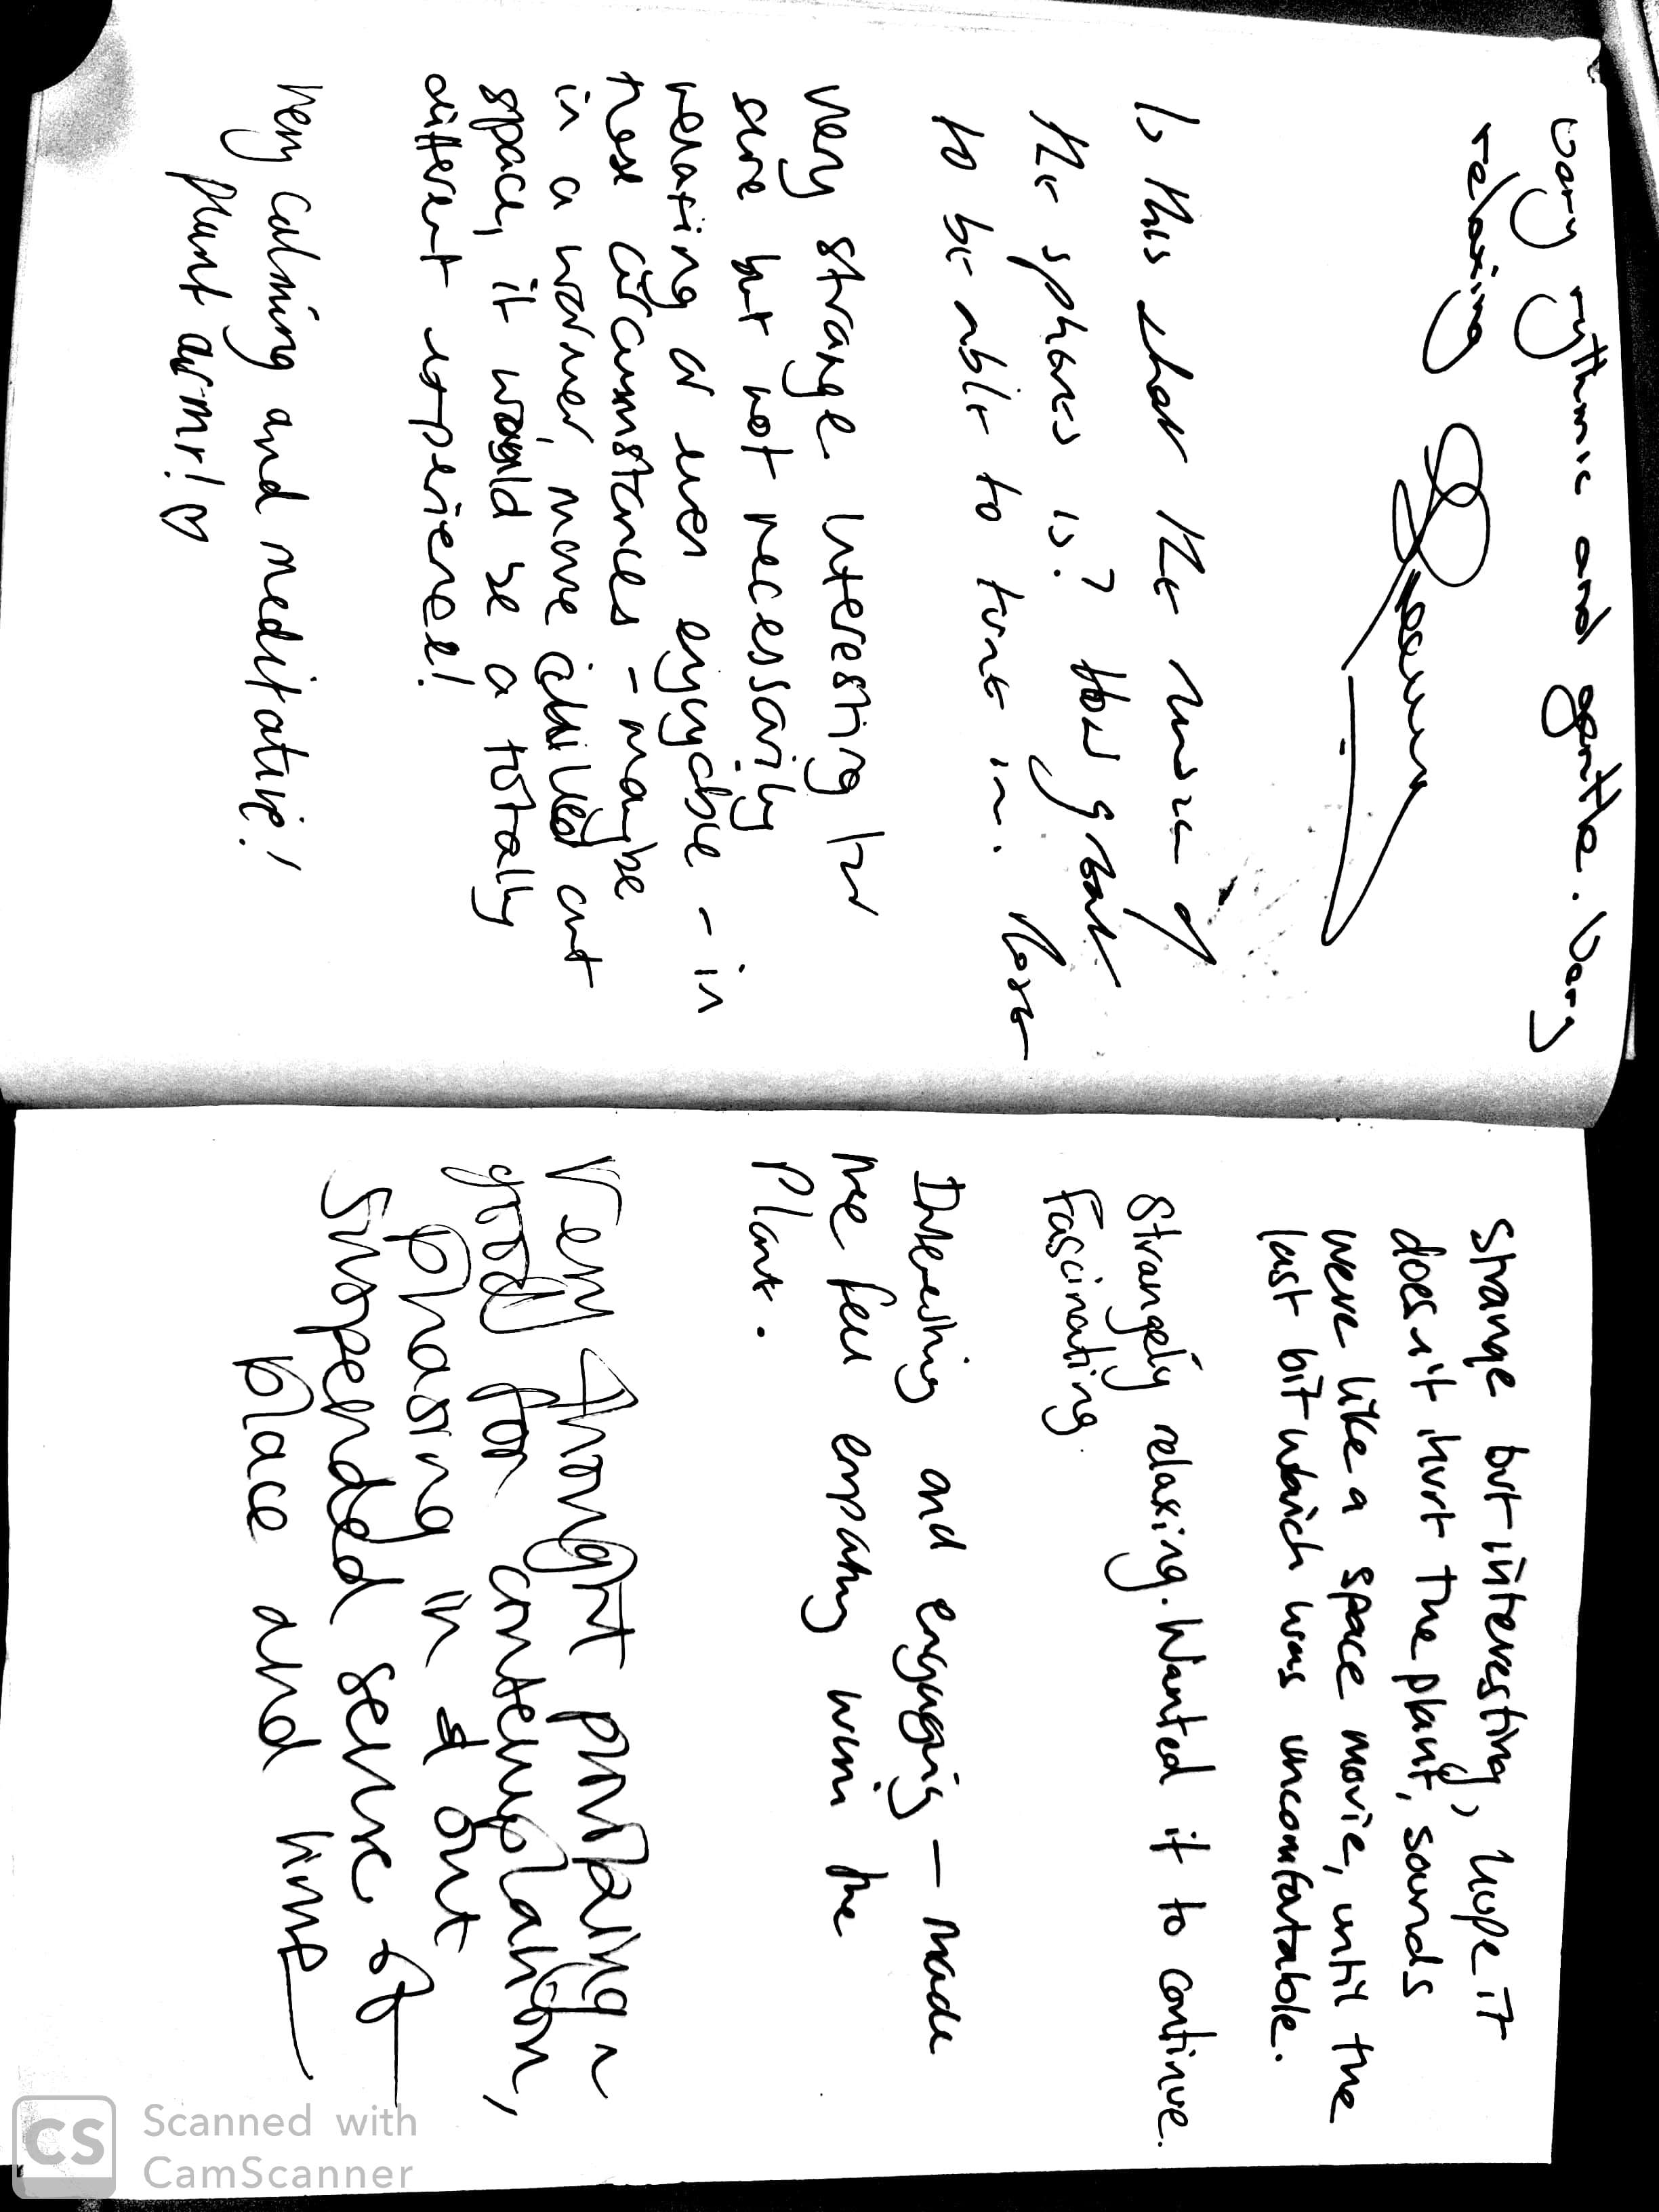 Very rythmic and gentle. Very
relaxing
Is this what the music of
the spheres is? How great
to be able to tune in.
Very strange. Interesting for
sure but not necessarily
relaxing or even enjoyable - in
these circumstances - maybe
in a warmer, more chilled out
space, it would be a totally
different experience!
Very calming and meditative!
plant ♡
Strange but interesting, hope it
doesn't hurt the plant, sounds
were like a space movie, until the
last bit which was uncomfortable.
Strangely relaxing. Wanted it to continue.
Fascinating.
Interesting and engaging - made
me feel empathy with the
Plant.
Very thought provoking n
good for contemplation,
phasing in & out
suspended sense of
place and time
CS
Scanned with
CamScanner